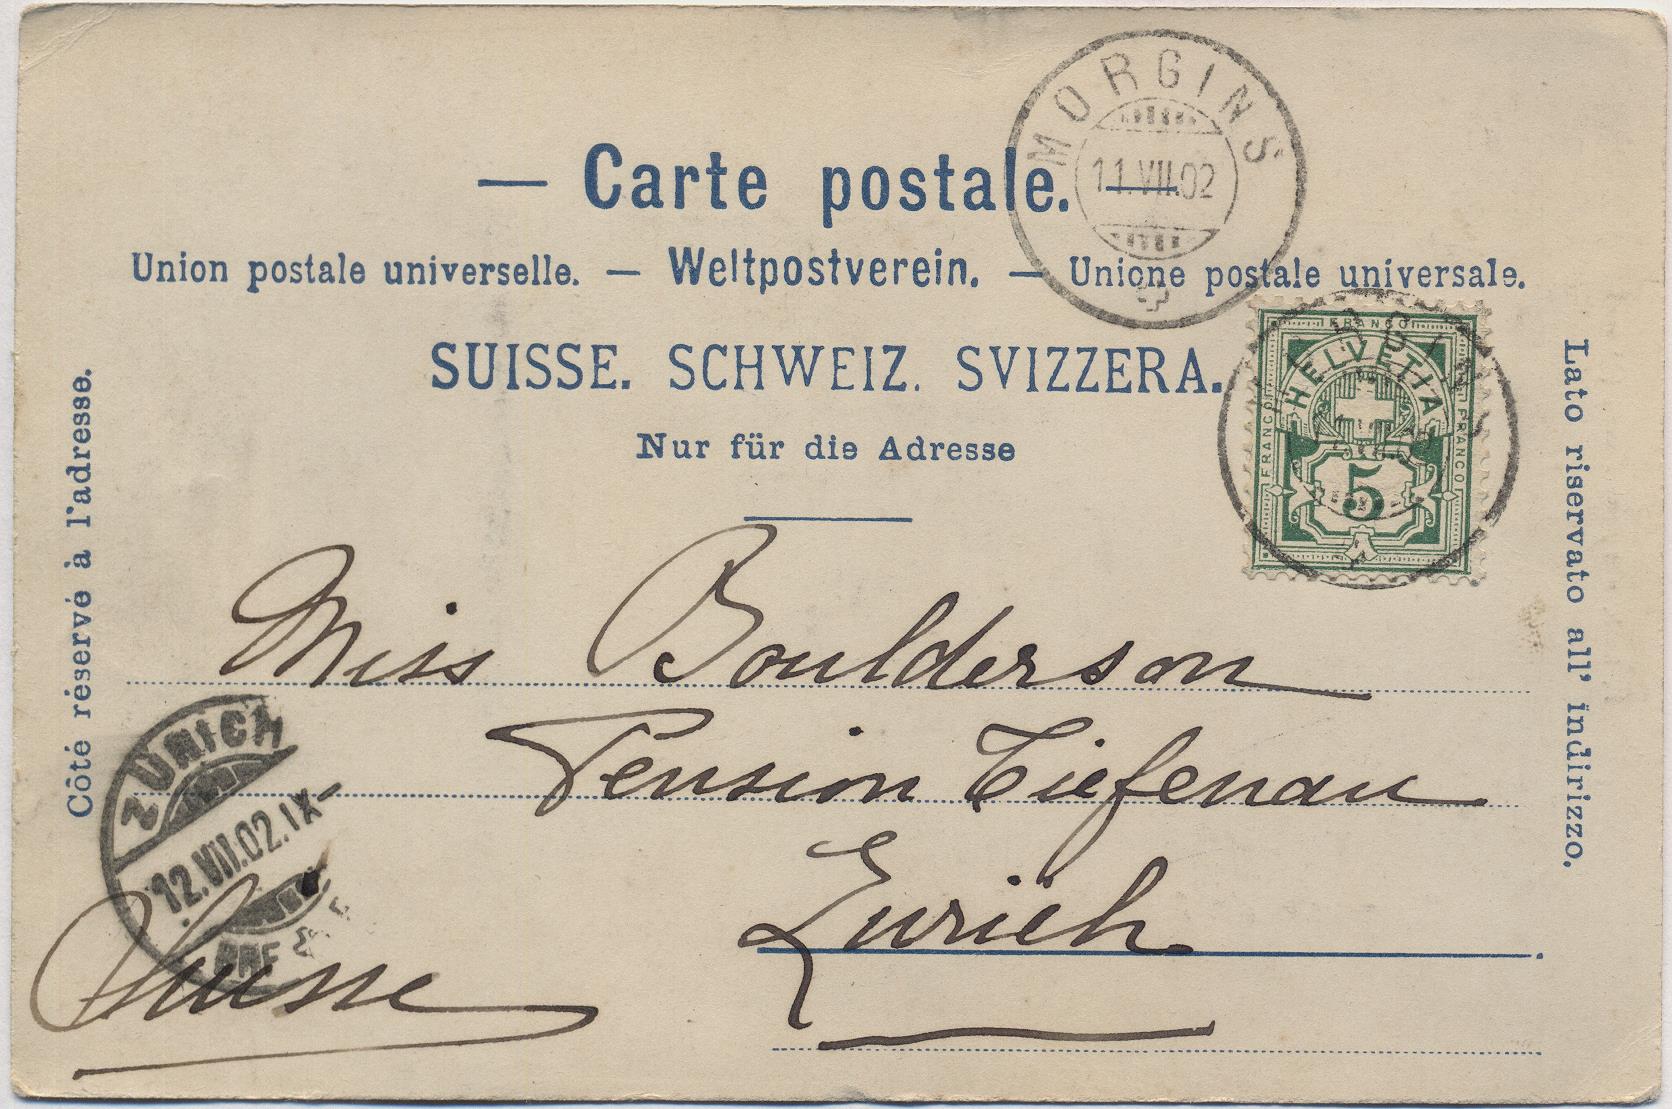 MORGINS
11.VII.02
— Carte postale. —
Union postale universelle. — Weltpostverein. — Unione postale universale.
SUISSE. SCHWEIZ. SVIZZERA.
Nur für die Adresse
Côté réservé à l'adresse.
Lato riservato all' indirizzo.
FRANCO
HELVETIA
FRANCO
FRANCO
5
Miss Boulderson
Pension Tiefenau
Zurich
Suisse
ZÜRICH
12.VII.02.IX-
BRF